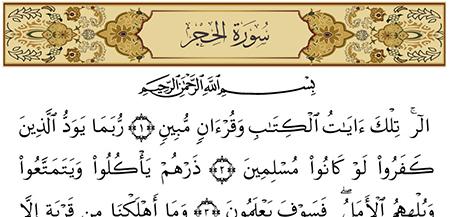 سُورَةُ الحِجْرِ
بِسْمِ اللَّهِ الرَّحْمَٰنِ الرَّحِيمِ
الٓرۚ تِلْكَ ءَايَٰتُ ٱلْكِتَٰبِ وَقُرْءَانٖ مُّبِينٖ ۝١ رُّبَمَا يَوَدُّ ٱلَّذِينَ
كَفَرُواْ لَوْ كَانُواْ مُسْلِمِينَ ۝٢ ذَرْهُمْ يَأْكُلُواْ وَيَتَمَتَّعُواْ
وَيُلْهِهِمُ ٱلْأَمَلُۖ فَسَوْفَ يَعْلَمُونَ ۝٣ وَمَآ أَهْلَكْنَا مِن قَرْيَةٍ إِلَّا